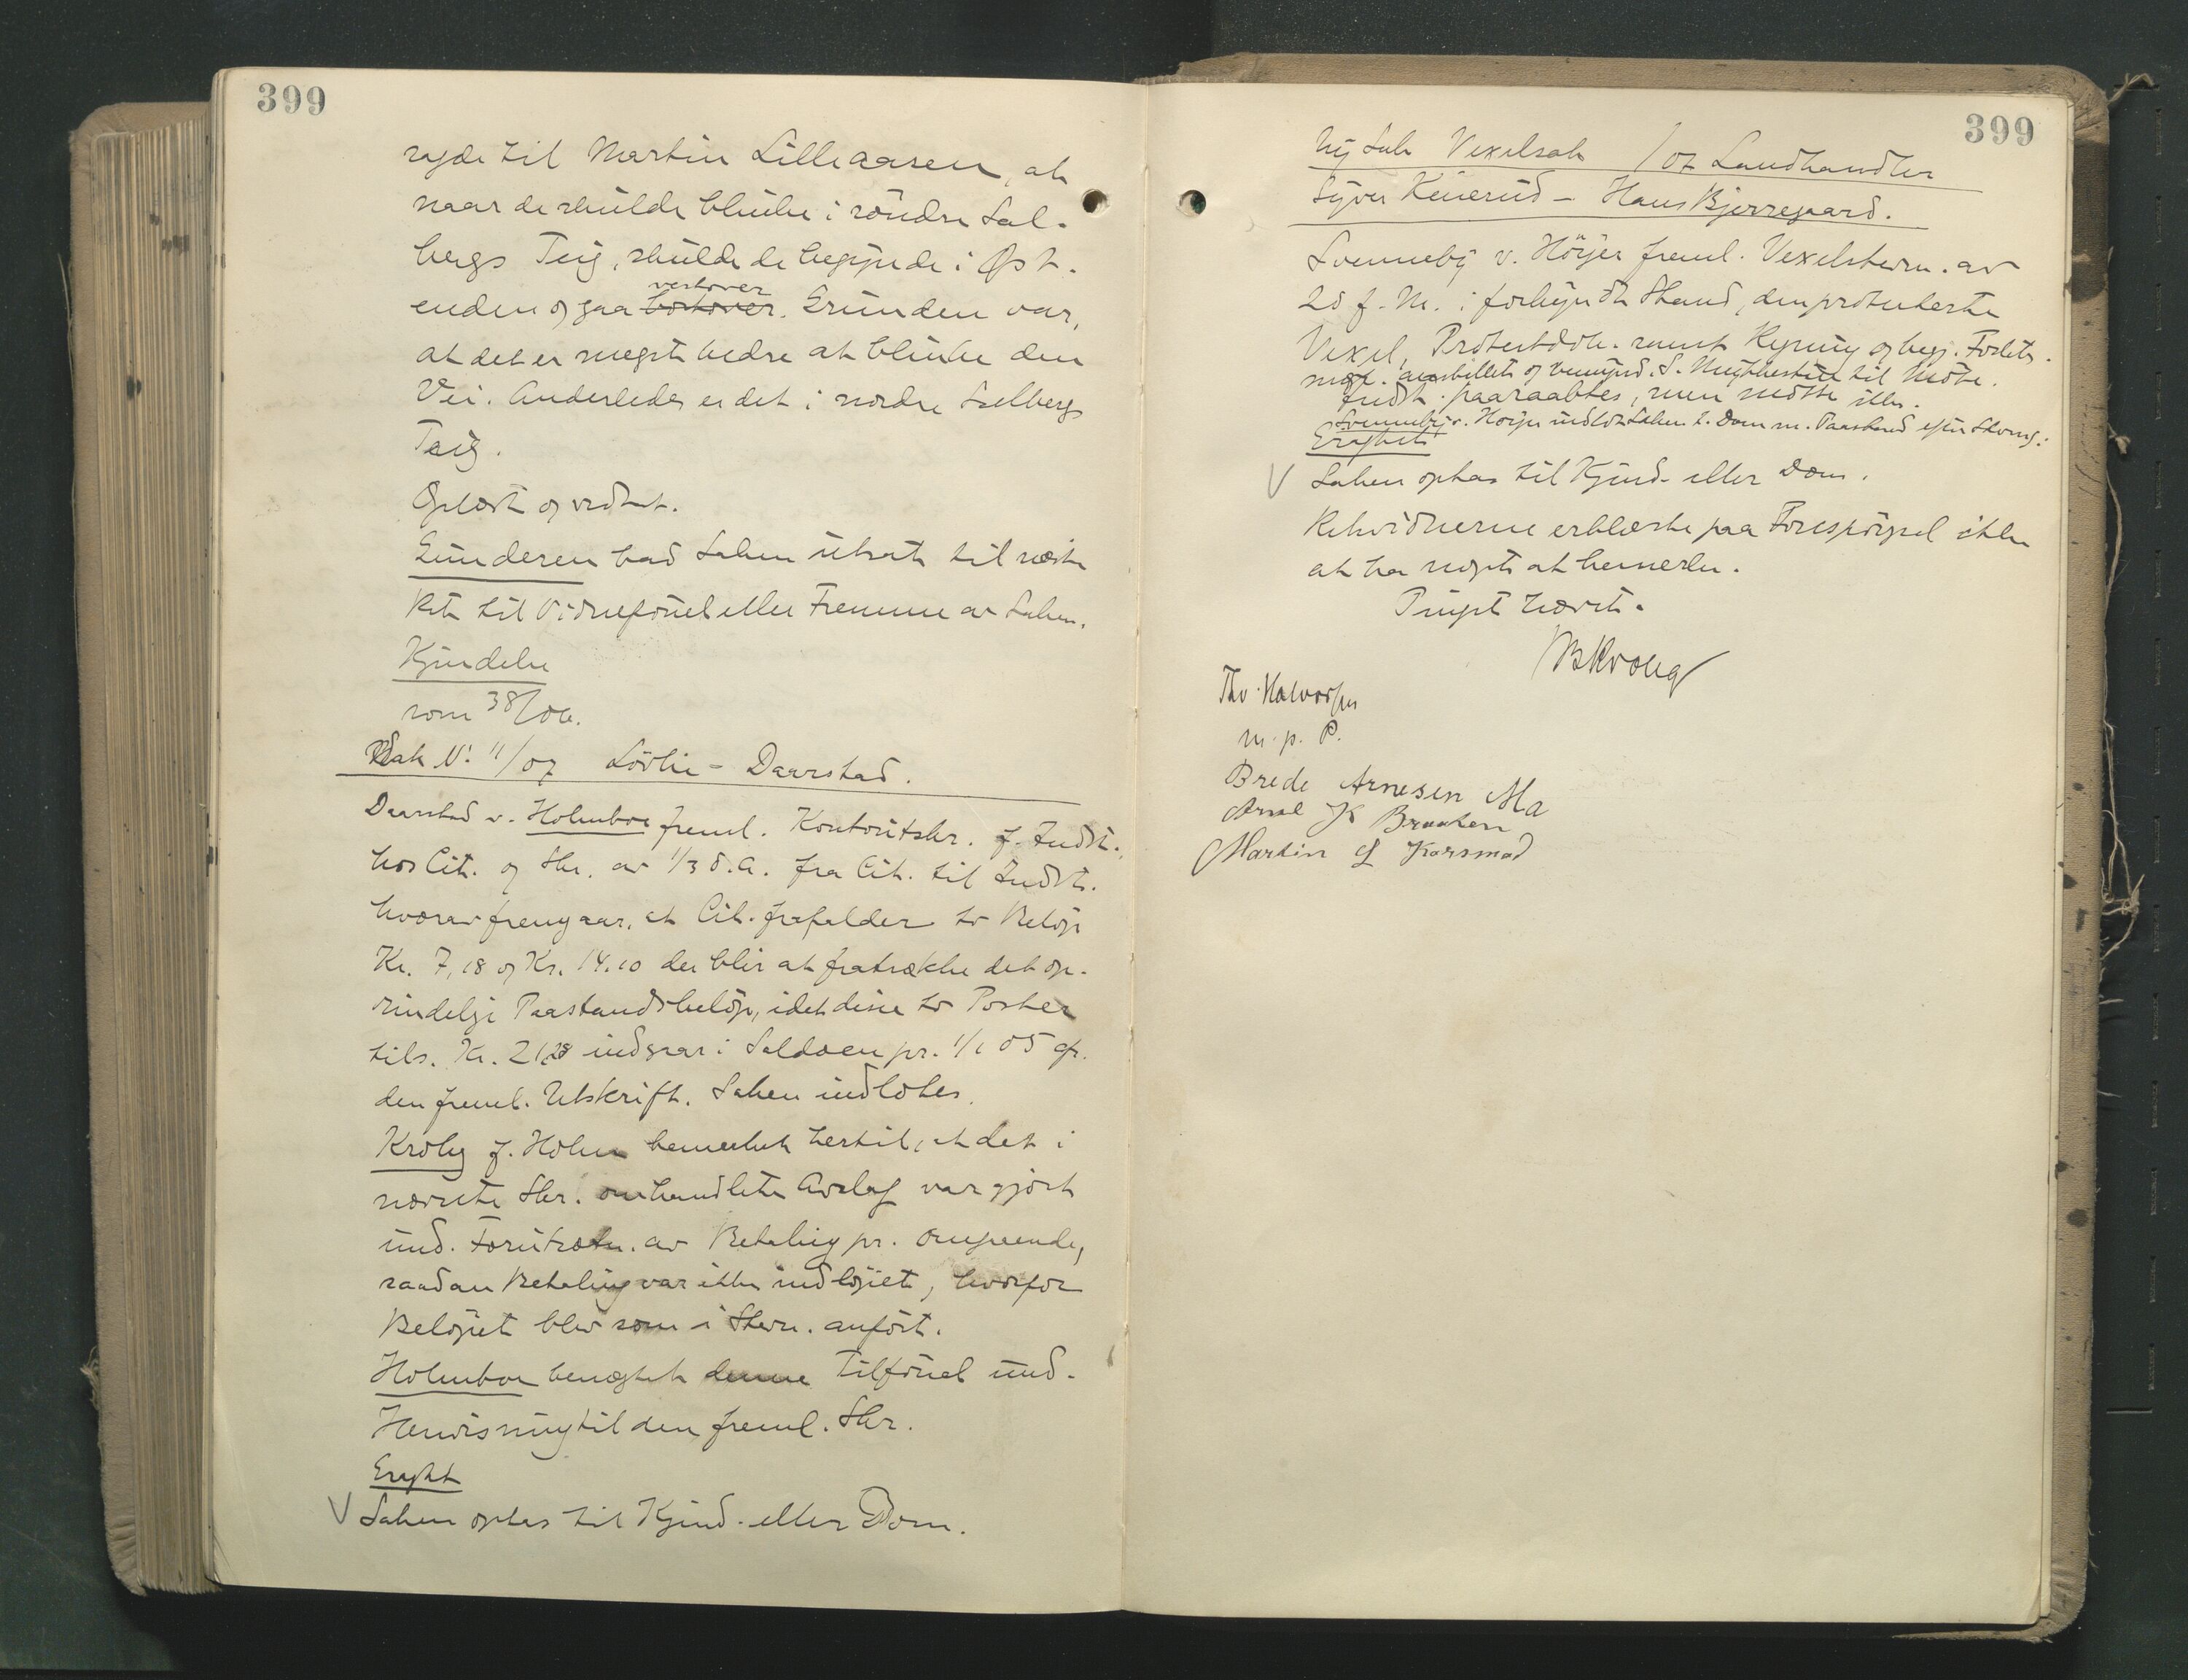 399
sagde til Martin Lilleaasen, at
naar de skulde blinke i söndre Sal-
bergs Teig, skulde de begynde i Øst-
enden og gaa bortover vestover. Grunden var,
at det er meget bedre at blinke den
Vei. Anderledes er det i nordre Salbergs
Teig.
Oplæst og vedtat.
Gunderen bad Saken utsat til næste
Ret til Vidneförsel eller Fremme av Saken.
Kjendelse
som 38/06.
Sak N: 11/07 Lövlie - Daarstad.
Daarstad v. Holmboe freml. Kontoutskr. f. Indst.
hos Cit. og Skr. av 1/3 d.A. fra Cit. til Indst.
hvorav fremgaar, at Cit. frafalder to Beløp
Kr. 7,18 og Kr. 14.10 der blir at fratrække det op-
rindelige Paastandsbelöp, idet disse to Poster
tils. Kr. 21,28 indgaar i Saldoen pr. 1/1 05 cfr.
den freml. Utskrift. Saken indlotes.
Krohg f. Holm bemerket hertil, at det i
nævnte Skr. omhandlete Avslag var gjört
und. Forutsætn. av Betaling pr. omgaaende,
saadan Betaling var ikke indlöpet, hvorfor
Belöpet blev som i Stevn. anfört.
Holmboe benegtet denne Tilförsel und.
Henvisning til den freml. Skr.
Eragtet
V Saken optas til Kjend. eller Dom.
399
Ny Sak Vexelsak /07 Landhandler
Syver Keiserud - Hans Bjerregaard.
Svenneby v. Höyer freml. Vexelstevn. av
28 f. M. i forkyndt Stand, den protesterte
Vexel, Protestdok. samt Regning og begj. Forlets.
mot. avsbillets og
Indst. paaraabtes, men mötte ikke.
Svenneby v. Höyer indlot Saken t. Dom m. Paastand efter Stevng.
Eragtet
V Saken optas til Kjend. eller Dom.
Retsvidnerne erklærte paa Forespörgsel ikke
at ha noget at bemerke.
Tinget hævet.
B Krohg
Thv. Halvorsen
m. p. P.
Brede Arnesen Ma
Arne K Braaten
Martin Korsmod